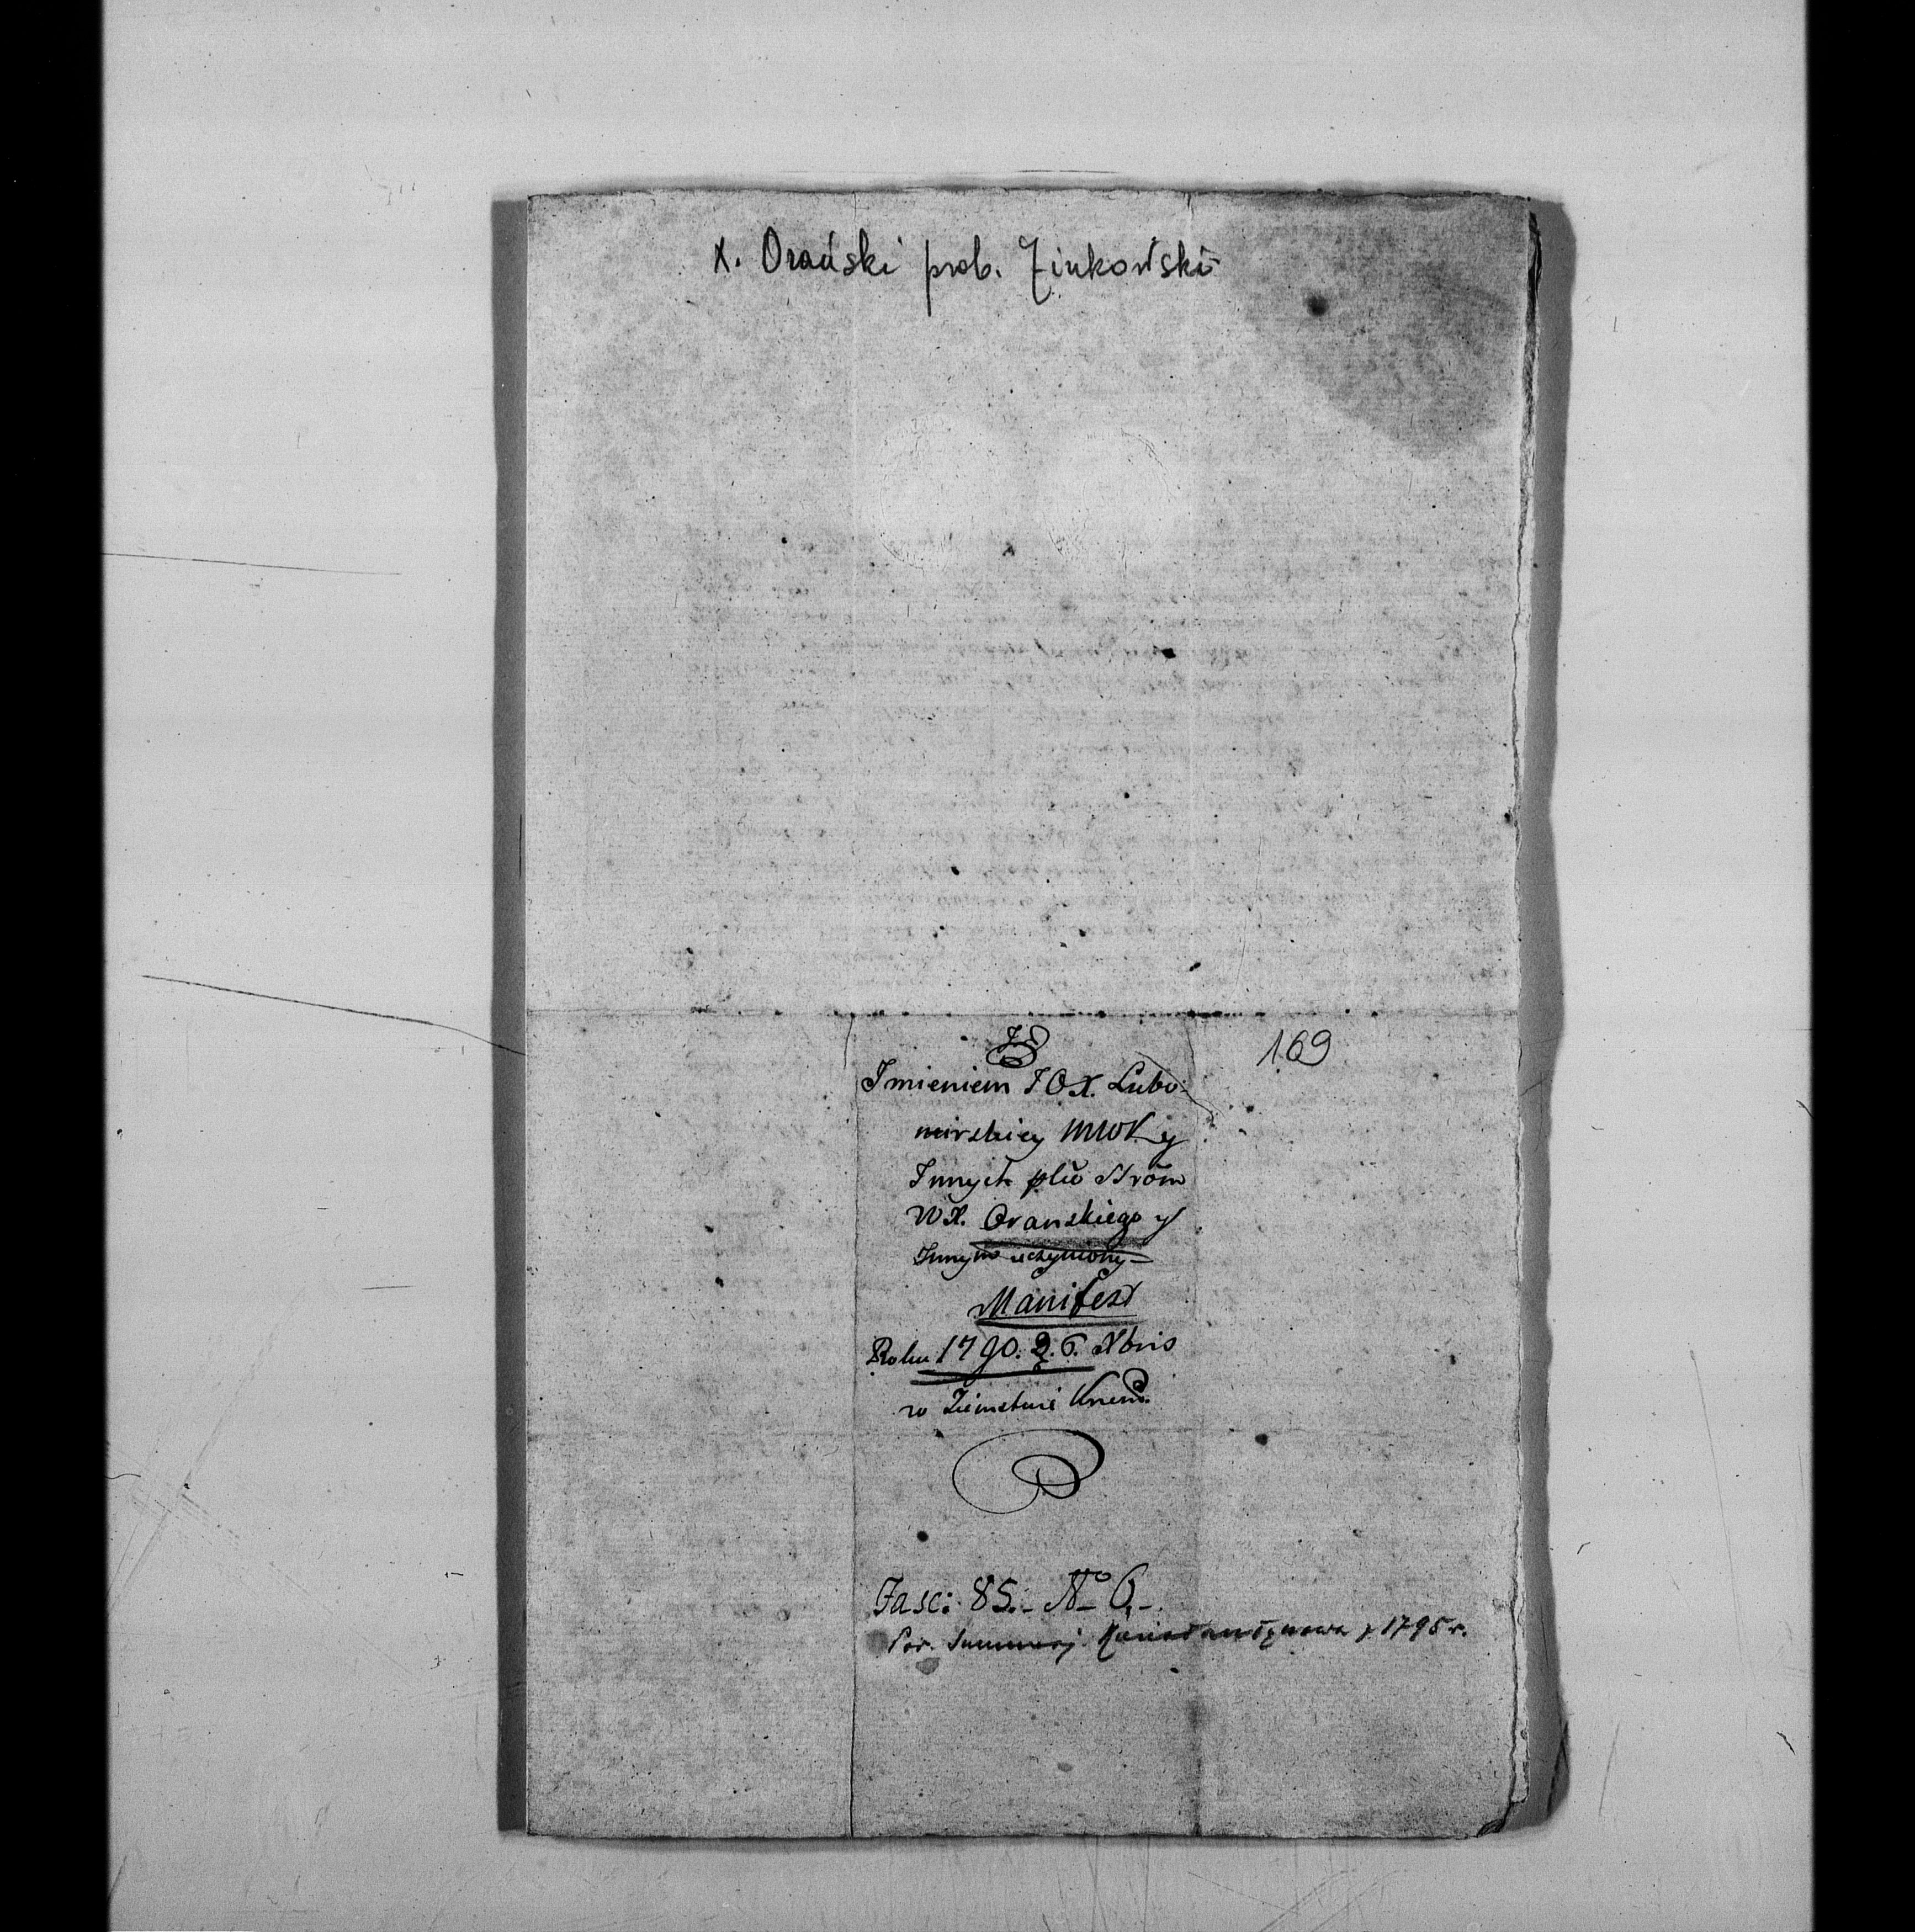 X. Orański prob. Zinkowski
169
Imieniem J O X. Lubo-
mirskiey MWK y
Innych plū Strōm
WX. Oranskiego y
Innym uczyniony
Manifest
Roku 1790. 26. Xbris
w Ziemstwie
Fasci: 85. No 6.
Por. z 1795 r.